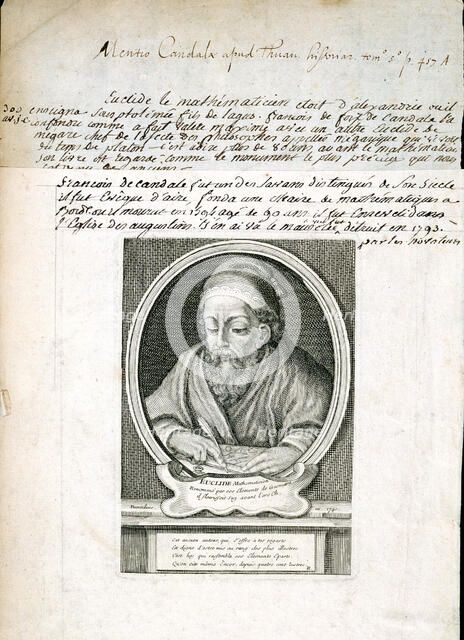 Mentio Candalæ apud Thuan. historiar. tom. 5º p. 457 A
Euclide le mathématicien etoit D'alexandrie ou il
300 enseigna sous ptolemée fils de lagus. françois de foix de Candale la
av. J.C confondre comme a fait Valere maxime avec un autre Euclide de
megare chef de secte des philosophes appellée mégarique qui vivoit
du tems de platon c'est adire plus de ans avant le mathematicien
son livre est regardé comme le monument le plus précieux qui nous
françois de candale fut un des savans distingués de son siecle
il fut Evêque d'aire, fonda une chaire de mathematiques a
Bordeaux il mourut en agé de 90 ans. il fut enseveli dans
l'Eglise des augustins. J'en ai vû le mausolée, detruit en 1793.
par les
EUCLIDE Mathematicien
Renommé par ses Elements de Geometrie
il florissoit 309 avant l'ere Ch.
1740
Cet ancien auteur, qui s'offre à tes regards
Est digne d'estre mis au rang des plus illustres
C'est luy qui rassembla ces Elements Epars
Qu'on suit même Encor, depuis quatre cent lustres.